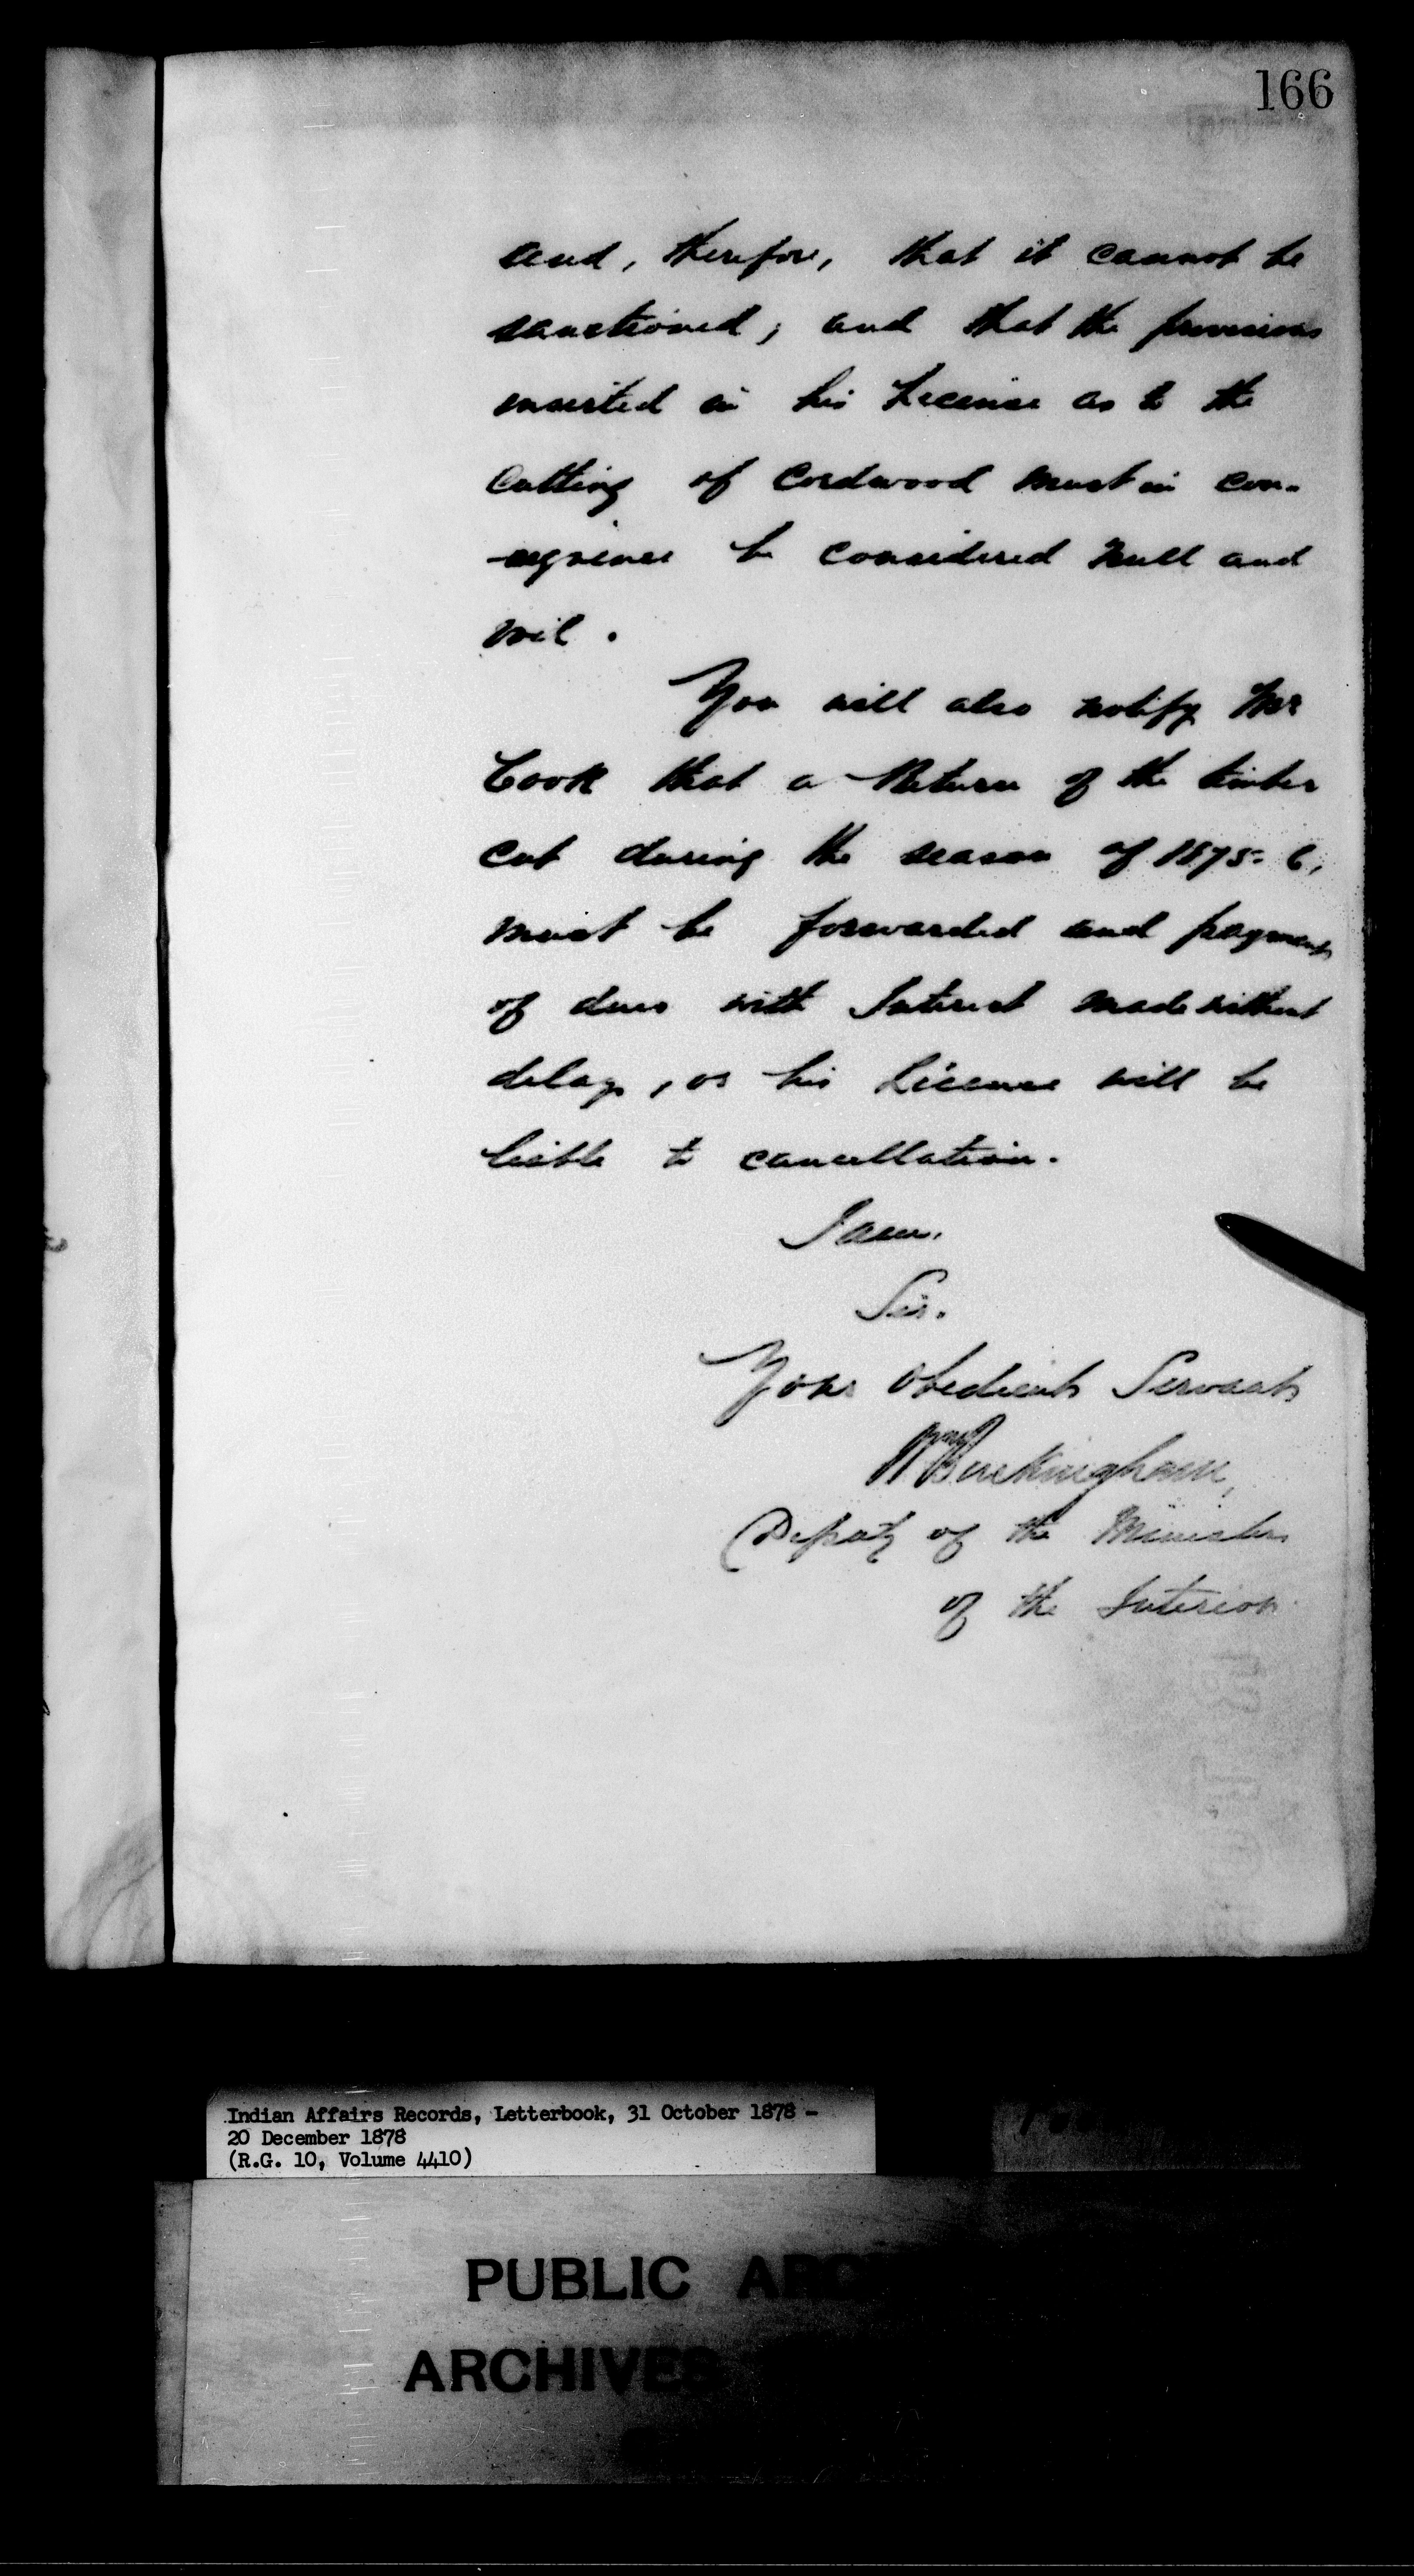 166
and, therefore, that it cannot be
sanctioned; and that the provisions
inserted in his License as to the
Cutting of Cordwood must in con-
-sequence be considered null and
nil.
You will also notify Mr
Cook that a Return of the timber
cut during the season of 1875-6,
must be forwarded and payment
of dues with Interest made without
delay, or his License will be
liable to cancellation.
I am,
Sir.
Your obedient Servant
Wm Buckingham,
Deputy of the Minister
of the Interior
Indian Affairs Records, Letterbook, 31 October 1878 -
20 December 1878
(R.G. 10, Volume 4410)
PUBLIC ARC
ARCHIVES